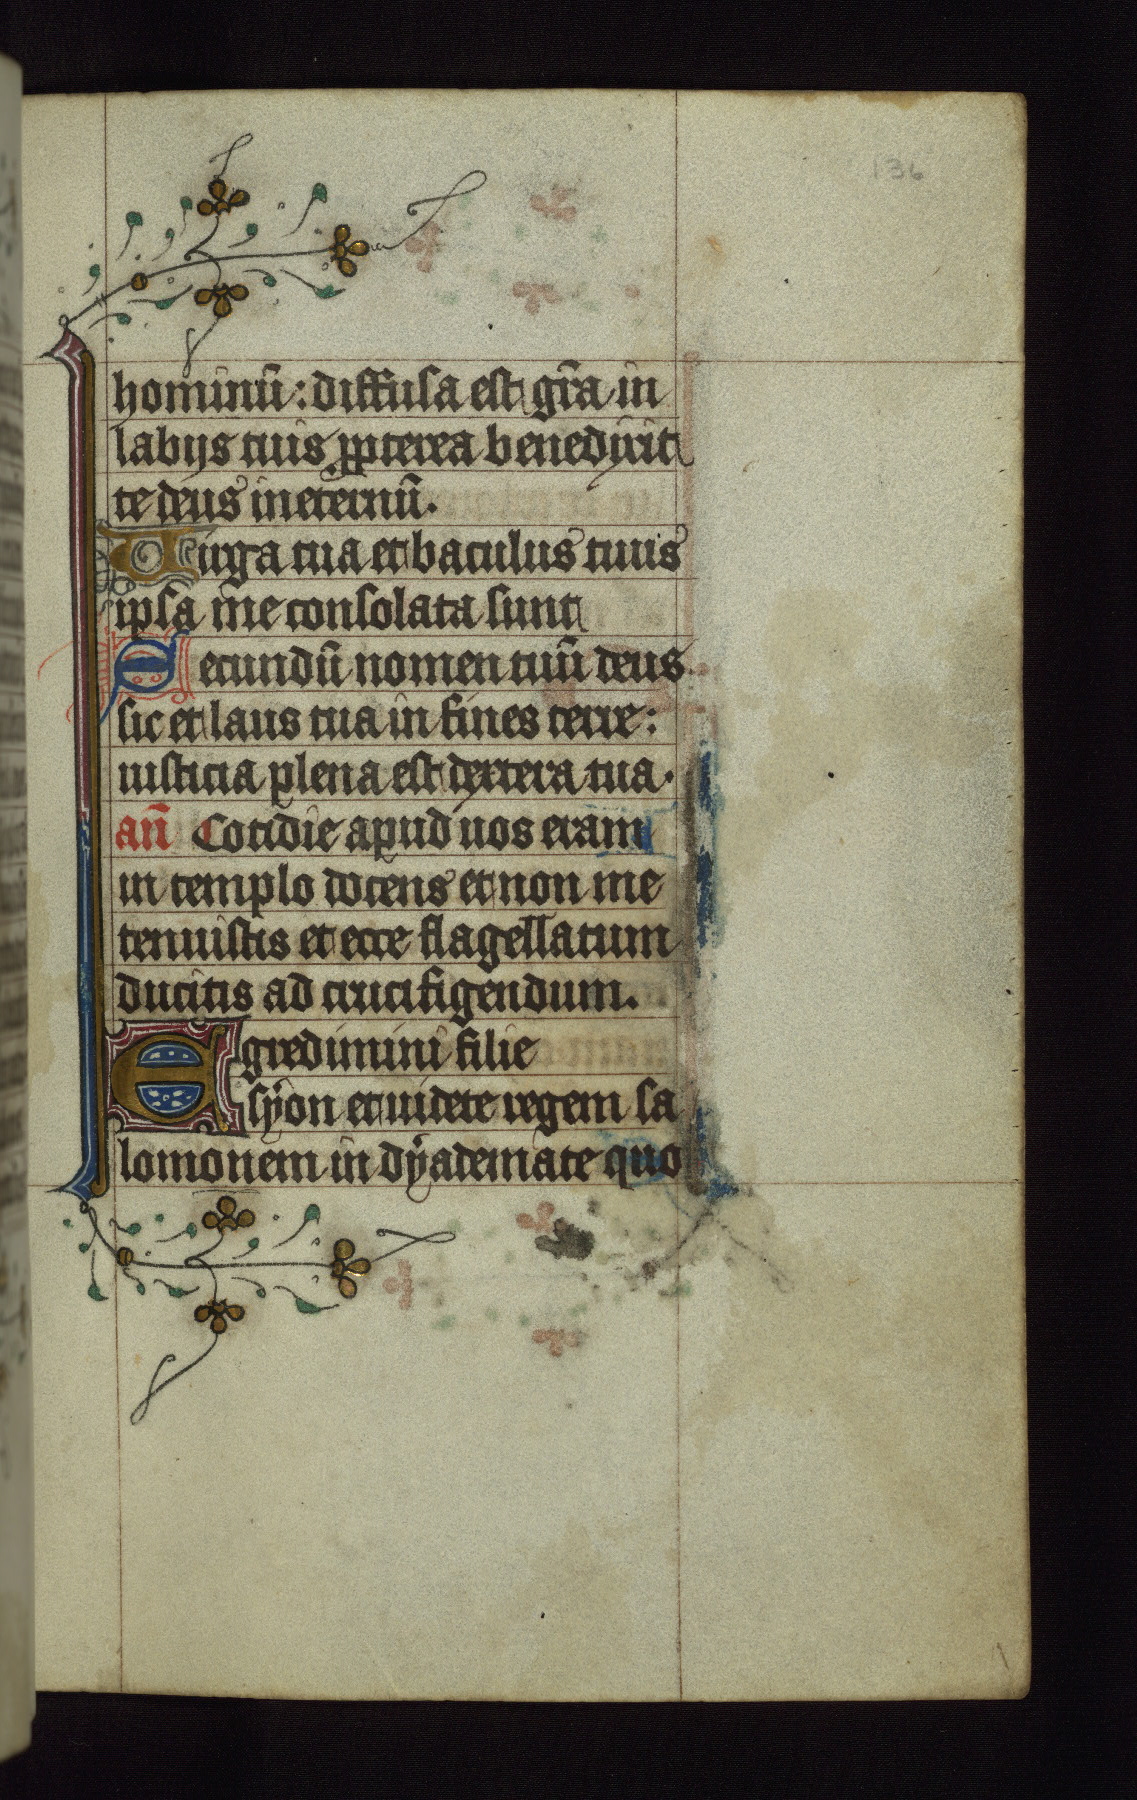 136
hominū: diffusa est gr̄a in
labijs tuis ꝓpterea benedixit
te deus in eternū.
Uirga tua et baculus tuus
ipsa me consolata sunt
Secundū nomen tuū deus
sic et laus tua in fines terre:
iusticia plena est dextera tua.
an̄ Cotidie apud uos eram
in templo docens et non me
tenuistis et ecce flagellatum
ducitis ad crucifigendum.
Egredimini filie
syon et uidete regem sa
lomonem in dyademate quo